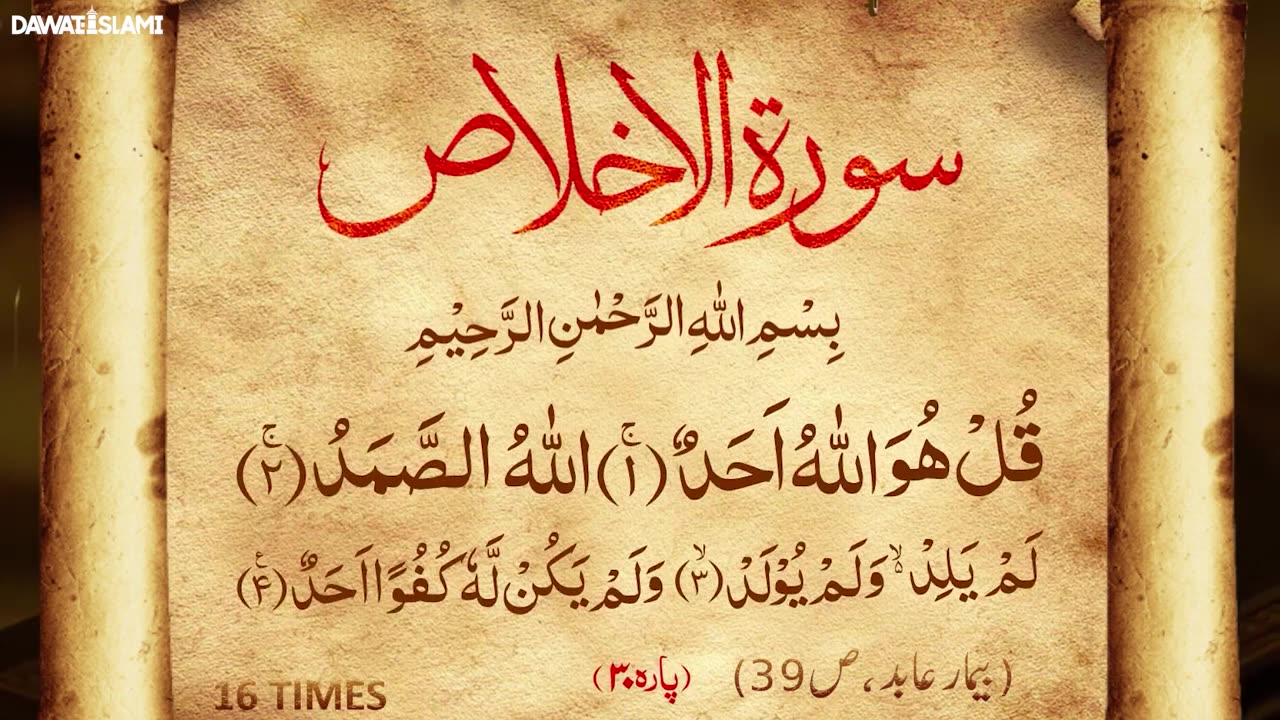 DAWATEISLAMI
سورة الاخلاص
بِسْمِ اللّٰهِ الرَّحْمٰنِ الرَّحِیْمِ
قُلْ هُوَ اللّٰهُ اَحَدٌۚ(۱) اَللّٰهُ الصَّمَدُۚ(۲)
لَمْ یَلِدْ ﳔ وَ لَمْ یُوْلَدْۙ(۳) وَ لَمْ یَكُنْ لَّهٗ كُفُوًا اَحَدٌ۠(۴)
(بیمار عابد، ص39) (پارہ ۳۰)
16 TIMES